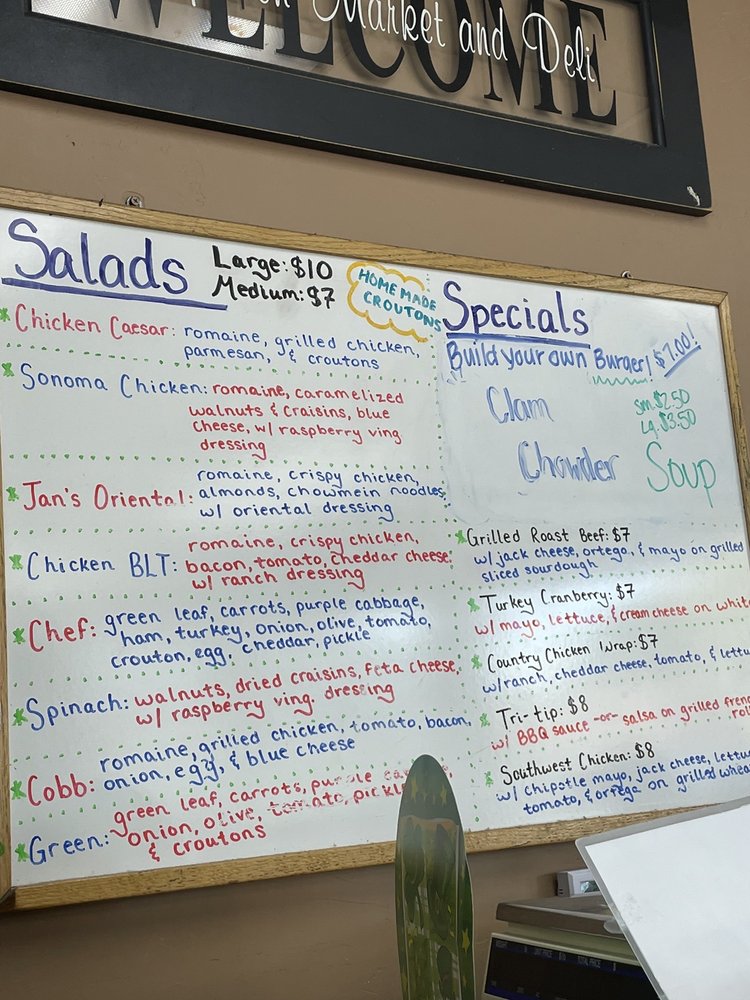 Market and Deli
WELCOME
Salads
Large: $10
Medium: $7
HOME MADE
CROUTONS
Chicken Caesar: romaine, grilled chicken,
parmesan, & croutons
Sonoma Chicken: romaine, caramelized
walnuts & craisins, blue
cheese, w/ raspberry ving
dressing
Jan's Oriental: romaine, crispy chicken,
almonds, chowmein noodles,
w/ oriental dressing
Chicken BLT: romaine, crispy chicken,
bacon, tomato, cheddar cheese,
w/ ranch dressing
Chef: green leaf, carrots, purple cabbage,
ham, turkey, onion, olive, tomato,
crouton, egg, cheddar, pickle
Spinach: walnuts, dried craisins, feta cheese,
w/ raspberry ving. dressing
Cobb: romaine, grilled chicken, tomato, bacon,
onion, egg, & blue cheese
Green: green leaf, carrots, purple
onion, olive, tomato, pickle
& croutons
Specials
Build your own Burger! $7.00!
Clam
Chowder
sm. $2.50
Lg. $3.50
Soup
Grilled Roast Beef: $7
w/ jack cheese, ortega, & mayo on grilled
sliced sourdough
Turkey Cranberry: $7
w/ mayo, lettuce, & cream cheese on
Country Chicken Wrap: $7
w/ ranch, cheddar cheese, tomato, &
Tri-tip: $8
w/ BBQ sauce -or- salsa on grilled
Southwest Chicken: $8
w/ chipotle mayo, jack cheese,
tomato, & ortega on grilled